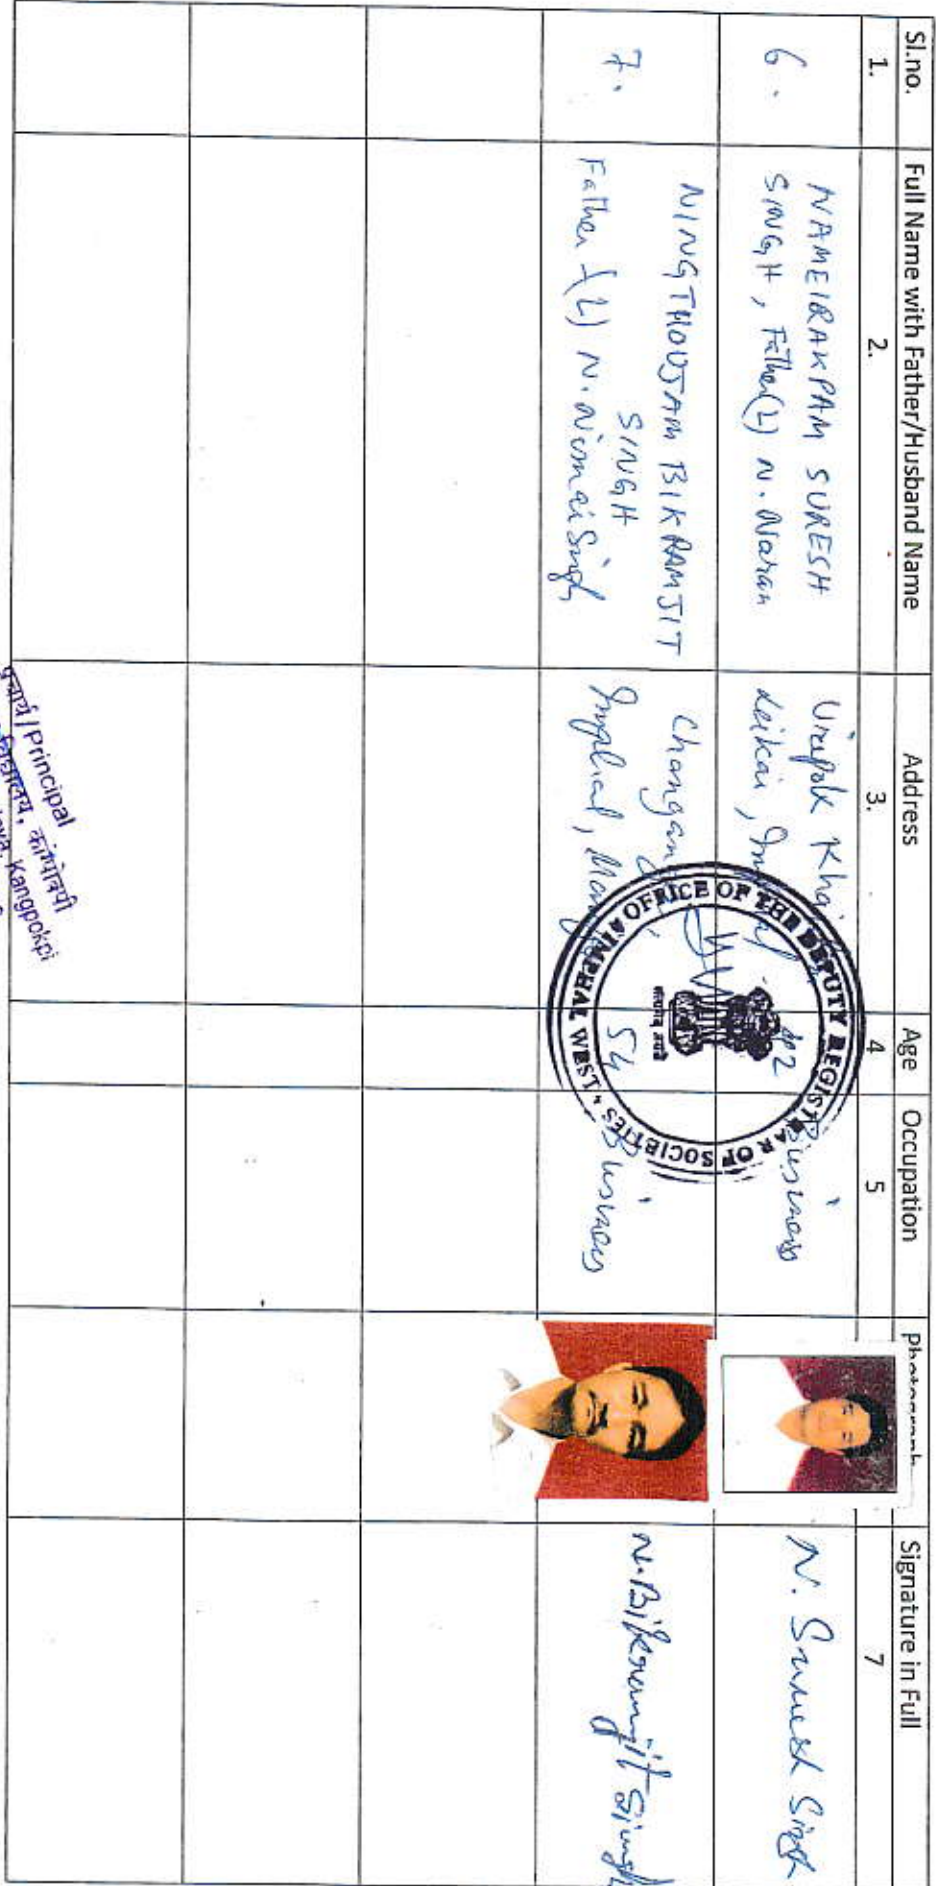 Sl.no. Full Name with Father/Husband Name Address Age Occupation Photograph Signature in Full
1. 2. 3. 4 5 7
6. NAMEIRAKPAM SURESH
SINGH, Father(L) N. Naran
Uripok Khai
Leikai,
Business
N. Suresh Singh
7. NINGTHOUJAM BIKRAMJIT
SINGH
Father (L) N. Nimai Singh
Changan
Imphal,
54
Business
N. Bikramjit Singh
OFFICE OF THE DEPUTY REGISTRAR OF SOCIETIES
IMPHAL WEST
सत्यमेव जयते
/ Principal
विद्यालय, कांगपोकपी
Kangpokpi